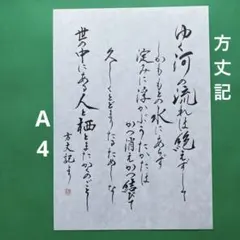 方丈記
A4
ゆく河の流れは絶えずして
しかももとの水にあらず
淀みに浮かぶうたかたは
かつ消えかつ結びて
久しくとどまりたるためしなし
世の中にある人と栖とまたかくのごとし
方丈記より